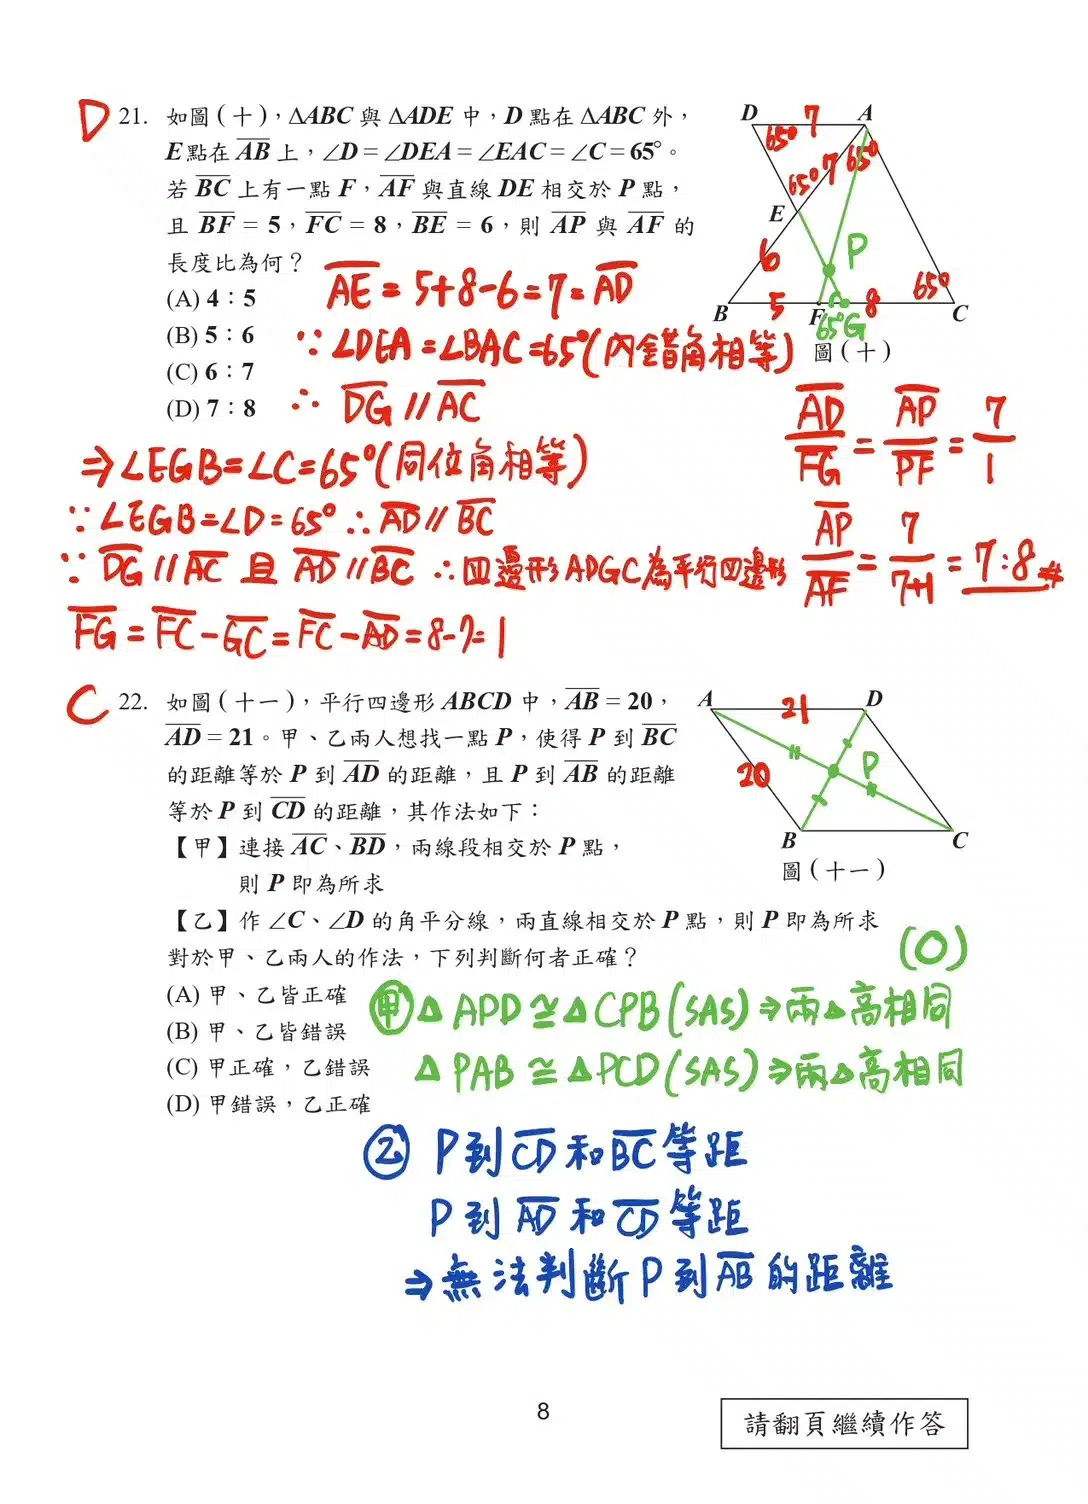 D 21. 如圖(十),△ABC 與 △ADE 中,D 點在 △ABC 外,
E點在 A̅B̅ 上,∠D = ∠DEA = ∠EAC = ∠C = 65°。
若 B̅C̅ 上有一點 F,A̅F̅ 與直線 DE 相交於 P 點,
且 B̅F̅ = 5,F̅C̅ = 8,B̅E̅ = 6,則 A̅P̅ 與 A̅F̅ 的
長度比為何?
(A) 4:5
(B) 5:6
(C) 6:7
(D) 7:8
D 7 A
65° 65°
65° 7
E
6 P
65°
B 5 F 65°G 8 C
圖(十)
A̅E̅ = 5+8-6=7=A̅D̅
∵∠DEA=∠BAC=65°(內錯角相等)
∴ D̅G̅ // A̅C̅
⇒∠EGB=∠C=65°(同位角相等)
∵∠EGB=∠D=65° ∴A̅D̅ // B̅C̅
∵ D̅G̅ // A̅C̅ 且 A̅D̅ // B̅C̅ ∴四邊形ADGC為平行四邊形
F̅G̅ = F̅C̅ - G̅C̅ = F̅C̅ - A̅D̅ = 8-7=1
A̅D̅/F̅G̅ = A̅P̅/P̅F̅ = 7/1
A̅P̅/A̅F̅ = 7/7+1 = 7:8 #
C 22. 如圖(十一),平行四邊形 ABCD 中,A̅B̅ = 20,
A̅D̅ = 21。甲、乙兩人想找一點 P,使得 P 到 B̅C̅
的距離等於 P 到 A̅D̅ 的距離,且 P 到 A̅B̅ 的距離
等於 P 到 C̅D̅ 的距離,其作法如下:
【甲】連接 A̅C̅、B̅D̅,兩線段相交於 P 點,
則 P 即為所求
【乙】作 ∠C、∠D 的角平分線,兩直線相交於 P 點,則 P 即為所求
對於甲、乙兩人的作法,下列判斷何者正確?
(A) 甲、乙皆正確
(B) 甲、乙皆錯誤
(C) 甲正確,乙錯誤
(D) 甲錯誤,乙正確
A 21 D
20 P
B C
圖(十一)
(O)
甲 △APD≅△CPB(SAS)⇒兩△高相同
△PAB≅△PCD(SAS)⇒兩△高相同
乙 P到C̅D̅和B̅C̅等距
P到A̅D̅和C̅D̅等距
⇒無法判斷P到A̅B̅的距離
8
請翻頁繼續作答